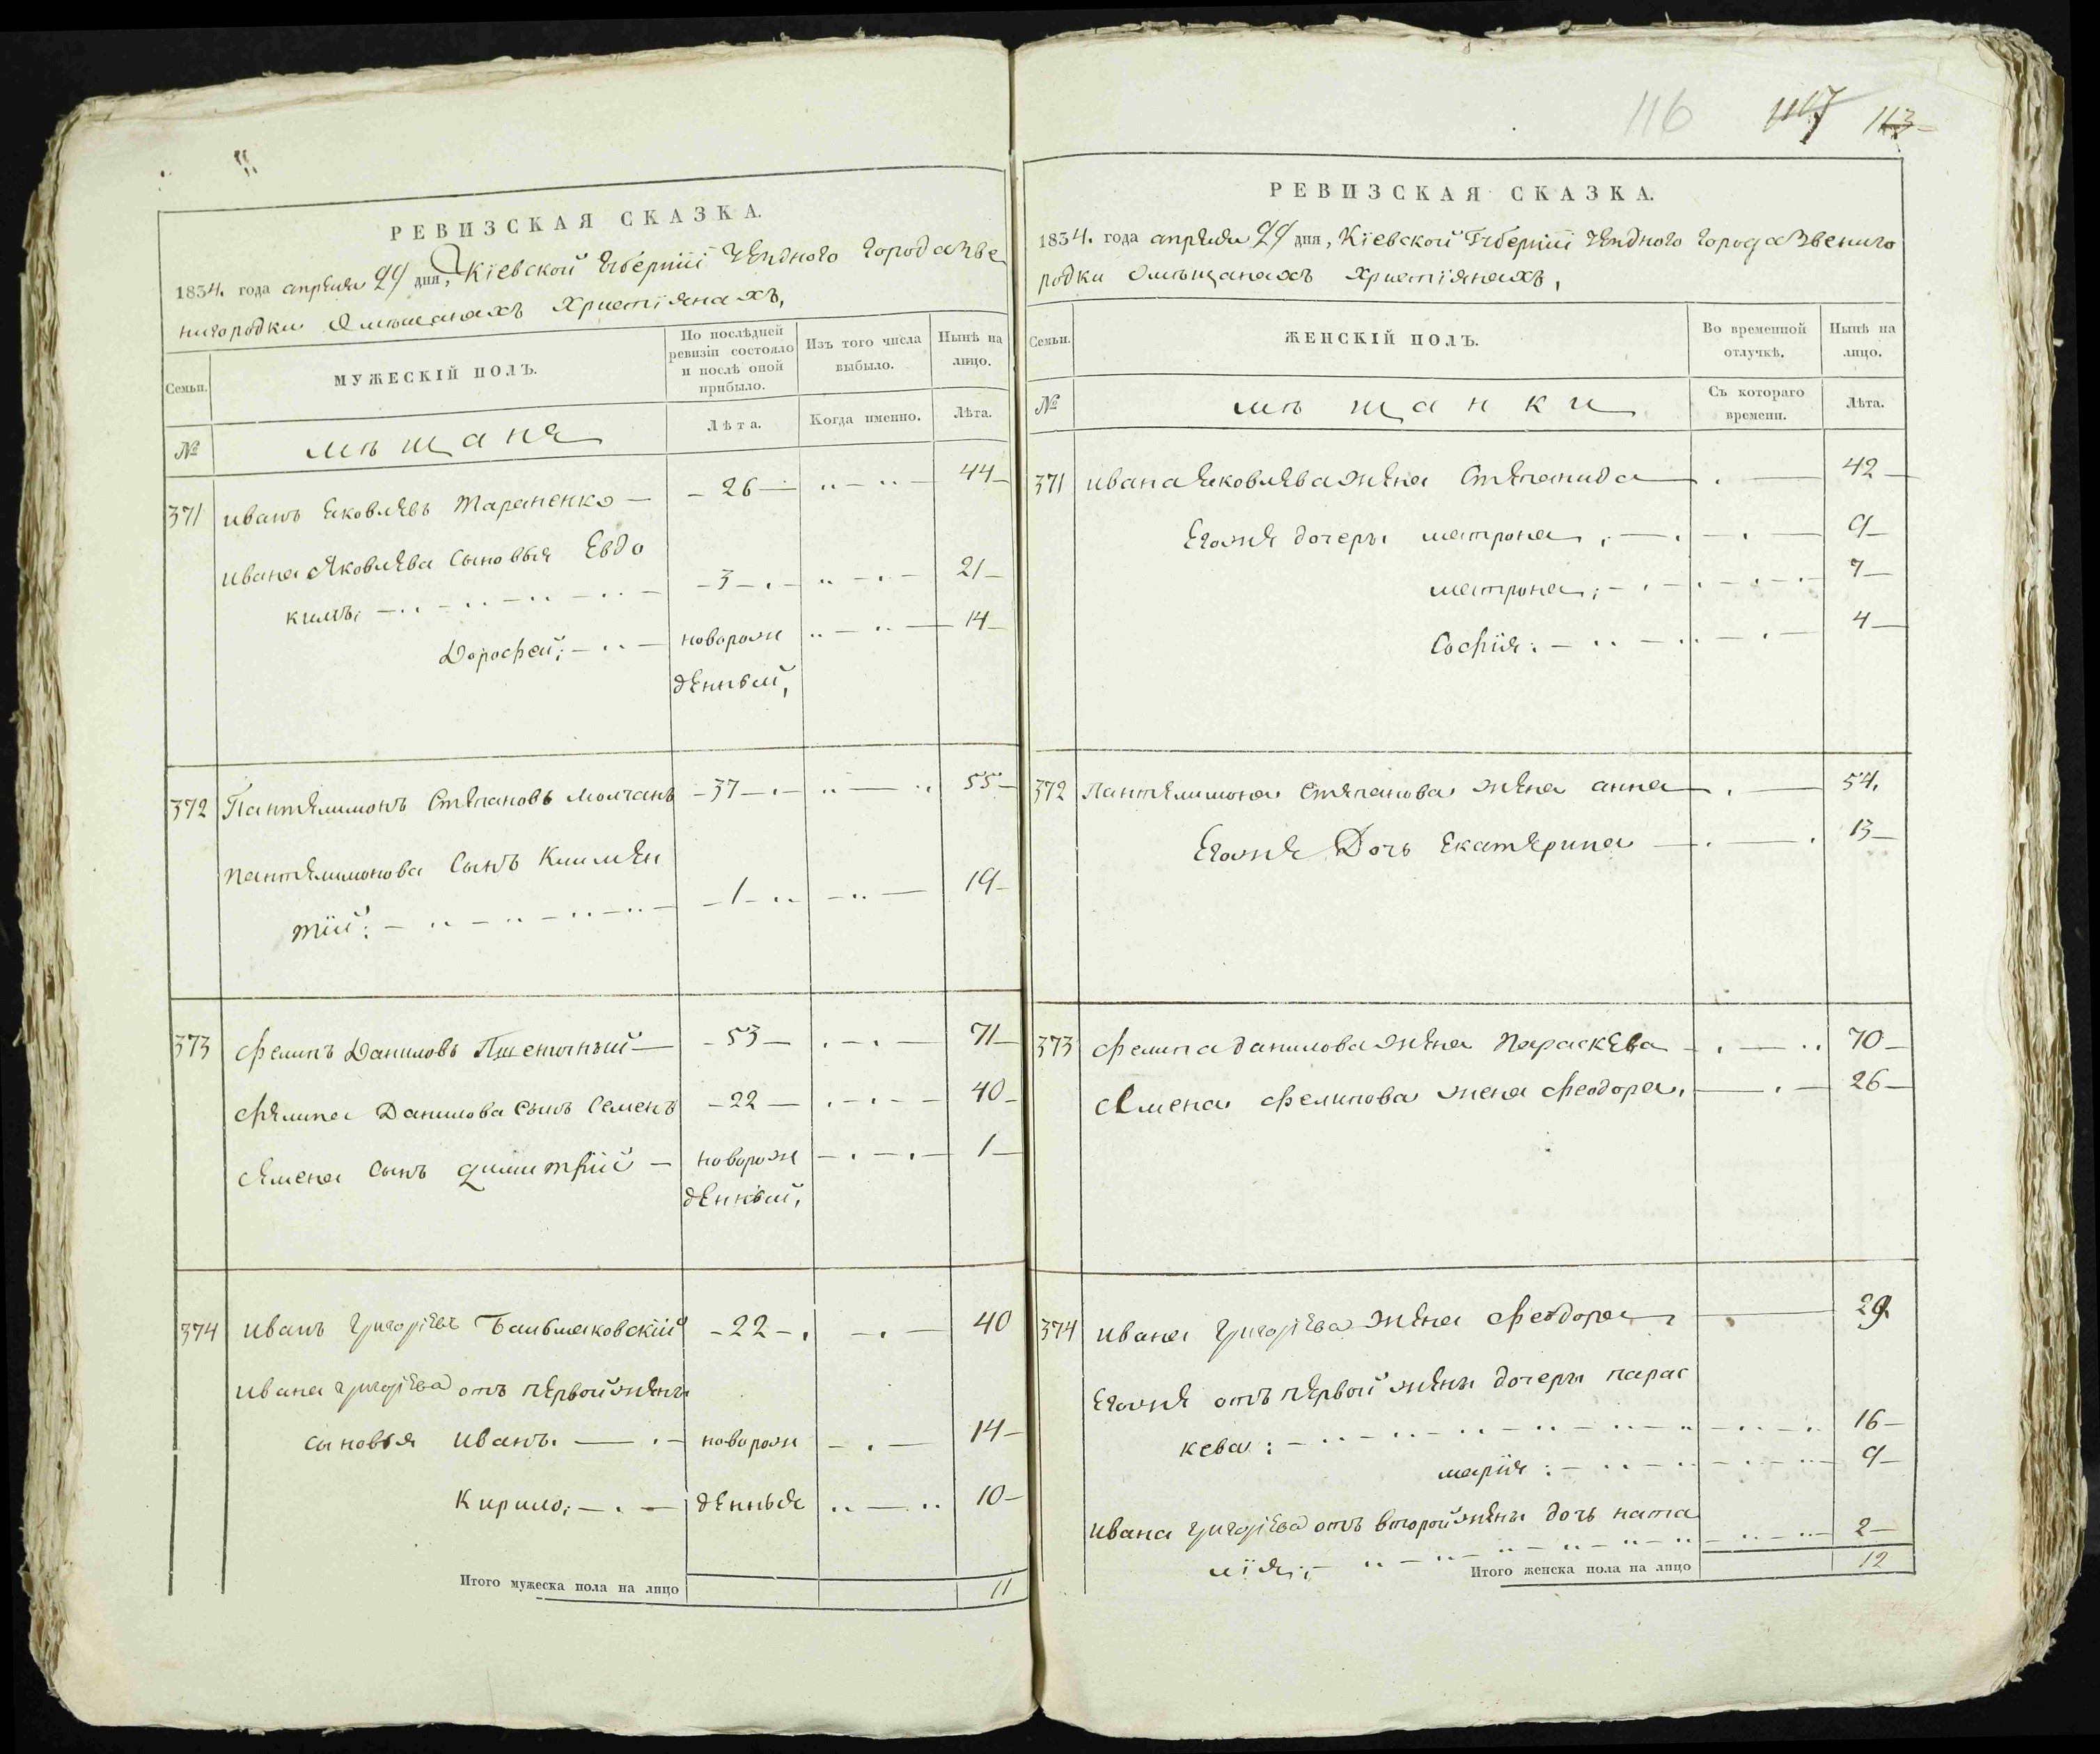 РЕВИЗСКАЯ СКАЗКА.
1834. года апреля 29 дня, Кіевской Губерніи Уезднаго города Зве
нигородки Омѣщанахъ Христіянахъ,
Семьи.
МУЖЕСКІЙ ПОЛЪ.
По послѣдней ревизіи состояло и послѣ оной прибыло.
Изъ того числа выбыло.
Нынѣ на лицо.
№
мѣщане
Лѣта.
Когда именно.
Лѣта.
371 иванъ яковлевъ Тараненко — 26 — 44
ивана Яковлева сыновья Евдо
кимъ; 3 21
Дорофей; новорож 14
денный,
372 Пантелимонъ Степановъ молчанъ 37 55
пантелимонова сынъ Климен
тій; 1 19
373 Фелипъ Даниловъ Пшеничный 53 71
Фелипа Данилова сынъ Семенъ 22 40
Семена сынъ димитрій новорож 1
денный,
374 иванъ григорьевъ 22 40
ивана григорьева отъ первой жены
сыновья иванъ новорож 14
Кирило; денныя 10
Итого мужеска пола на лицо 11
116 117 113
РЕВИЗСКАЯ СКАЗКА.
1834. года апреля 29 дня, Кіевской Губерніи Уезднаго города Звениго
родки Омѣщанахъ Христіянахъ,
Семьи.
ЖЕНСКІЙ ПОЛЪ.
Во временной отлучкѣ.
Нынѣ на лицо.
№
мѣщанки
Съ котораго времени.
Лѣта.
371 ивана яковлева жена Степанида 42
Егоже дочеры матрона, 9
матрона; 7
Софія: 4
372 пантелимона степанова жена анна 54.
Егоже Дочь Екатерина 13
373 фелипа данилова жена Параскева 70
Семена фелипова жена феодора, 26
374 ивана григорьева жена феодора, 29
Егоже отъ первой жены дочеры парас
кева: 16
марія: 9
ивана григорьева отъ второй жены дочь ната
лія; 2
Итого женска пола на лицо 12